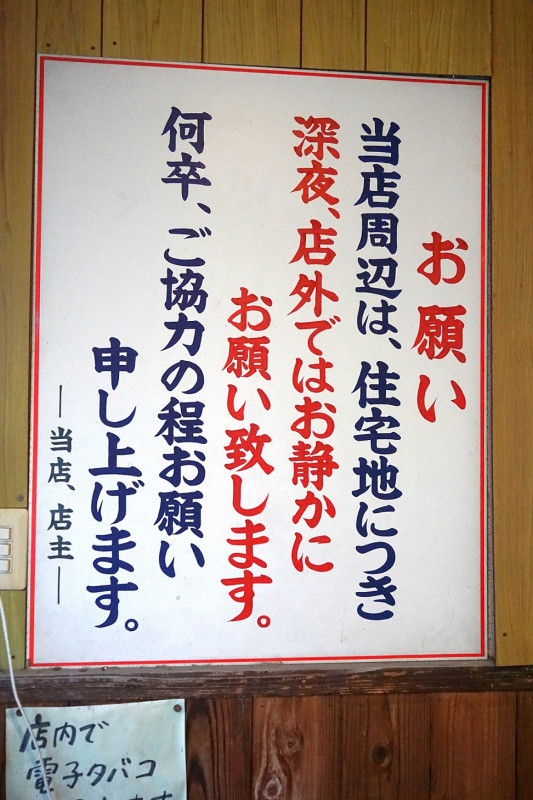 お願い
当店周辺は、住宅地につき
深夜、店外ではお静かに
お願い致します。
何卒、ご協力の程お願い
申し上げます。
―当店、店主―
店内で
電子タバコ